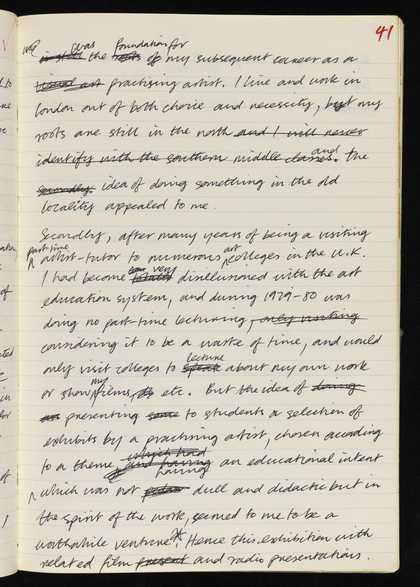 41
was foundation for
the of my subsequent career as a
visual art practising artist. I live and work in
London out of both choice and necessity, but my
roots are still in the north and I will never
identify with the southern middle classes. and the
secondly idea of doing something in the old
locality appealed to me.
Secondly, after many years of being a visiting
part-time artist-tutor to numerous art colleges in the U.K.
I had become very disillusioned with the art
education system, and during 1979-80 was
doing no part-time lecturing, only visiting
considering it to be a waste of time, and would
only visit colleges to speak lecture about my own work
or show my films, etc. But the idea of doing
an presenting some to students a selection of
exhibits by a practising artist, chosen according
to a theme which had and having having an educational intent
which was not dull and didactic but in
the spirit of the work, seemed to me to be a
worthwhile venture.* Hence this exhibition with
related film present and radio presentations.